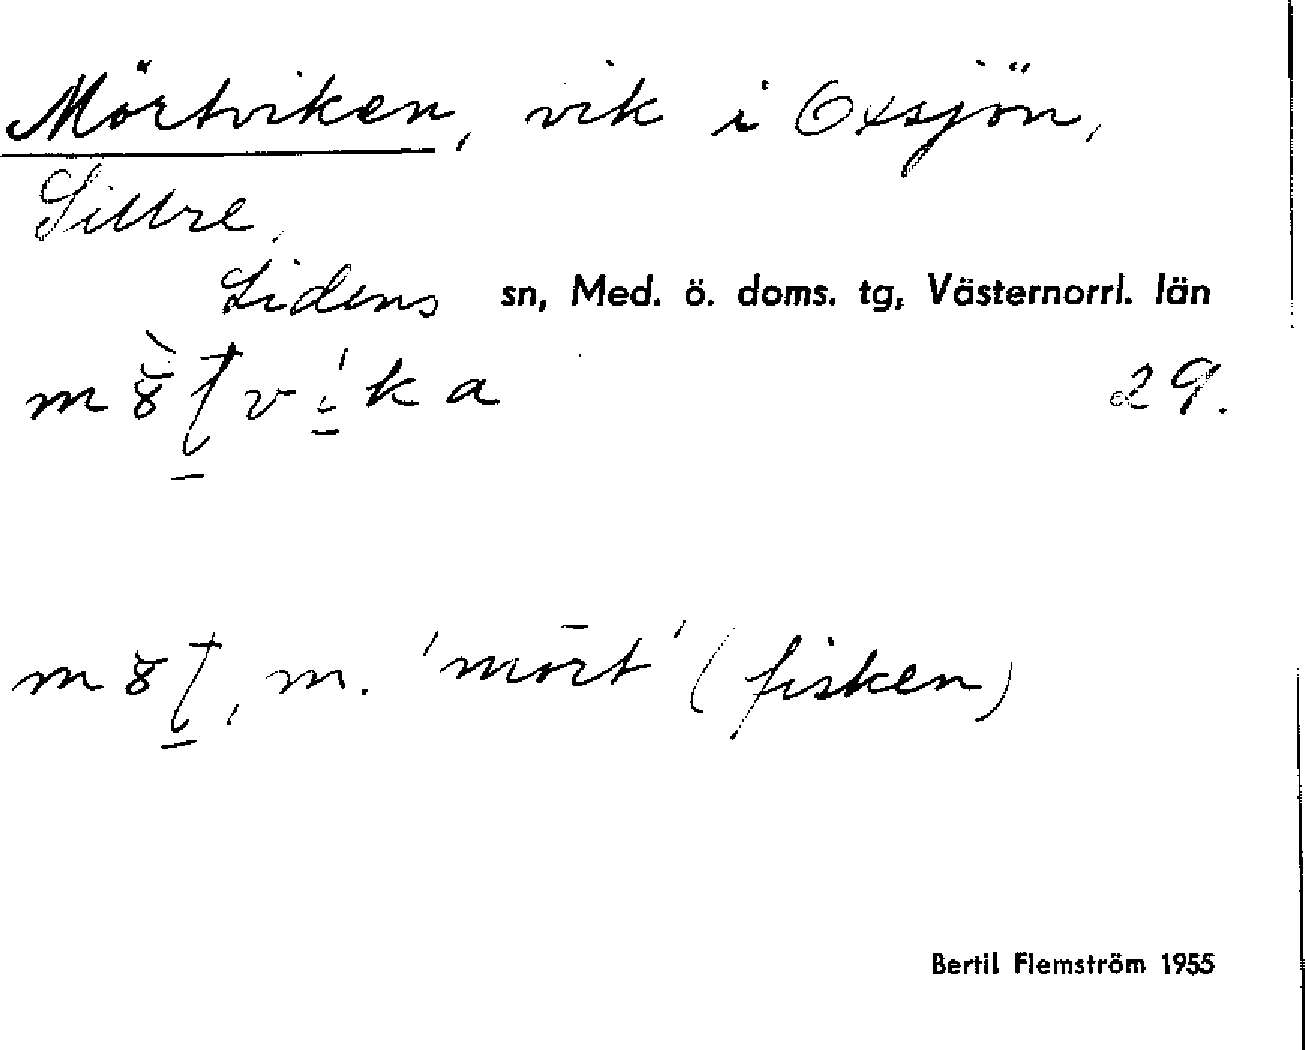 Mörtviken, vik i Oxsjön,
Sillre,
Lidens sn, Med. ö. doms. tg, Västernorrl. län
29.
m. 'mört' (fisken)
Bertil Flemström 1955